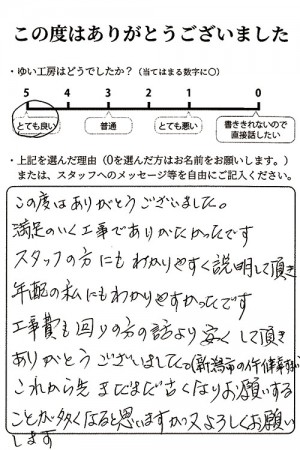 この度はありがとうございました
・ゆい工房はどうでしたか？（当てはまる数字に○）
5 4 3 2 1 0
とても良い 普通 とても悪い 書ききれないので直接話したい
・上記を選んだ理由（0を選んだ方はお名前をお願いします。）
または、スタッフへのメッセージ等を自由にご記入ください。
この度はありがとうございました。
満足のいく工事でありがたかったです
スタッフの方にもわかりやすく説明して頂き
年配の私にもわかりやすかったです
工事費も回りの方の話より安くして頂き
ありがとうございました。(新潟市の
これから先まだまだ古くなりお願いする
ことが多くなると思いますが又よろしくお願い
します